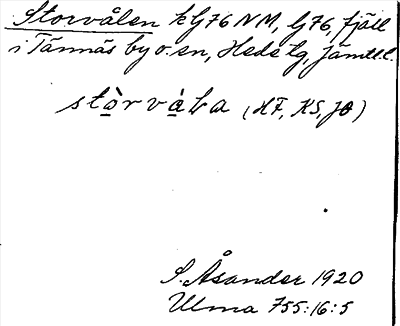 Storvålen tG76 NM, G76, fjäll
i Tännäs by o. sn, Hede tg, Jämtl. l.
stòrvàla (HF, KS, JO)
S. Åsander 1920
Ulma 755:16:5